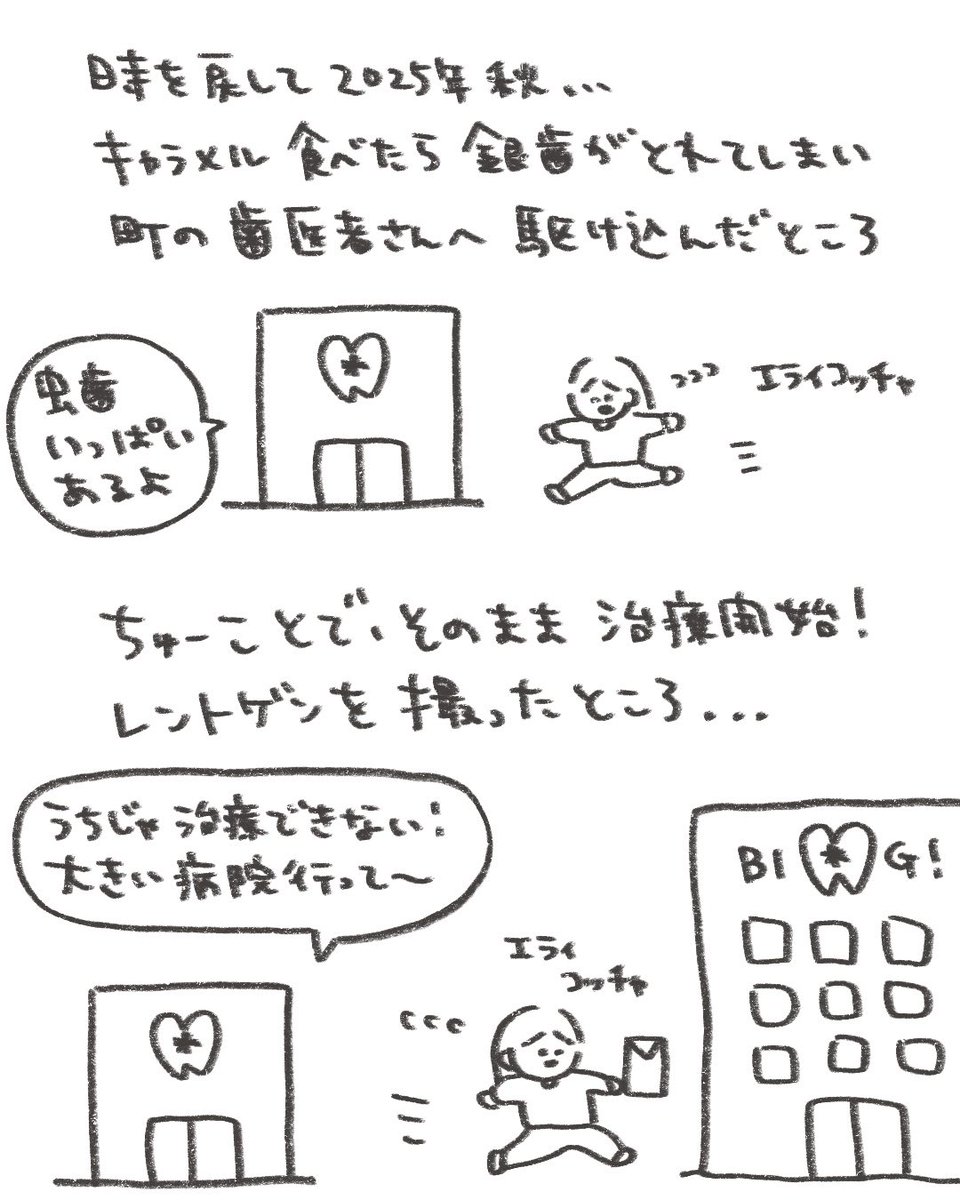 時を戻して 2025年 秋...
キャラメル 食べたら 銀歯がとれてしまい
町の 歯医者さんへ 駆け込んだところ
虫歯
いっぱい
あるよ
エライコッチャ
ちゅーことで、そのまま 治療開始!
レントゲンを 撮ったところ...
うちじゃ 治療できない!
大きい 病院行って〜
BI G!
エライ
コッチャ